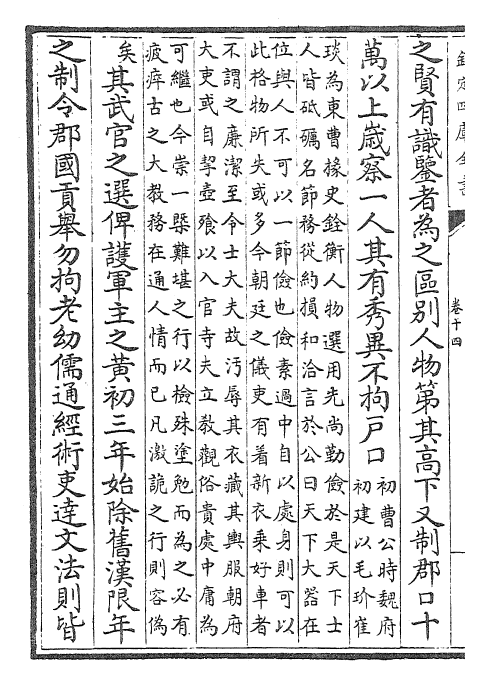 欽定四庫全書
卷十四
之賢有識鑒者為之區别人物第其高下又制郡口十
萬以上嵗察一人其有秀異不拘戸口
初曹公時魏府
初建以毛玠崔
琰為東曹掾史銓衡人物選用先尚勤儉於是天下士
人皆砥礪名節務從約損和洽言於公曰天下大器在
位與人不可以一節儉也儉素過中自以處身則可以
此格物所失或多今朝廷之儀吏有着新衣乘好車者
不謂之廉潔至令士大夫故汚辱其衣藏其輿服朝府
大吏或自挈壺飱以入官寺夫立教觀俗貴處中庸為
可繼也今崇一槩難堪之行以檢殊塗勉而為之必有
疲瘁古之大教務在通人情而已凡激詭之行則容偽
矣其武官之選俾護軍主之黄初三年始除舊漢限年
之制令郡國貢舉勿拘老幼儒通經術吏達文法則皆